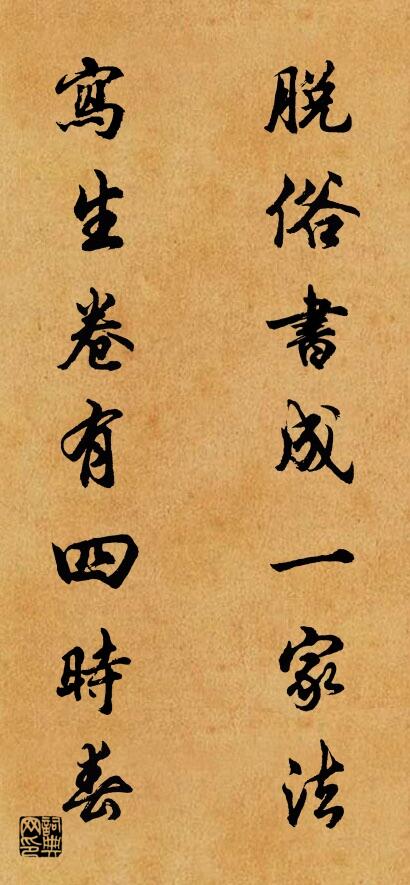 脱俗書成一家法
寫生卷有四時春
詞典
网印